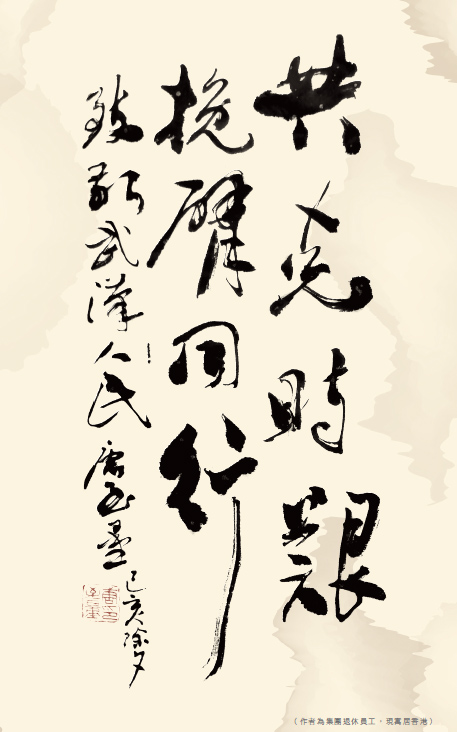 共克時艱
挽臂同行!
致敬武漢人民 唐至量
己亥除夕
（作者為集團退休員工，現寓居香港）